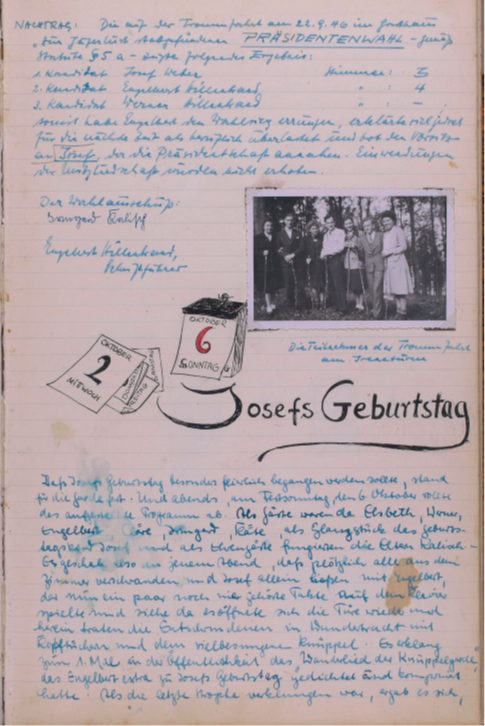 NACHTRAG: Die auf der Traumfahrt am 22.9.46 im Forsthaus
"Zur Jägerlust" stattgefundene PRÄSIDENTENWAHL - gemäß
Statute § 5 a - zeigte folgendes Ergebnis:
1. Kandidat Josef Weber Stimmen: 3
2. Kandidat Engelbert Hillenbrand " : 4
3. Kandidat Werner Hillenbrand " : -
somit habe Engelbert den Wahlsieg errungen, erklärte sich jedoch
für die nächste Zeit als beruflich überlastet und bot den Vorsitz
an Josef, der die Präsidentschaft annahm. Einwendungen
der wurden nicht erhoben.
Der Wahlausschuß:
Irmgard
Engelbert Hillenbrand,
Schriftführer
Die Teilnehmer der Traumfahrt
am
OKTOBER
6
SONNTAG
OKTOBER
2
MITTWOCH
DONNERSTAG
FREITAG
SAMSTAG
Josefs Geburtstag
Daß Josefs Geburtstag besonders feierlich begangen werden sollte, stand
für die Garde fest. Und abends, am Tessonntag, den 6. Oktober rollte
das Programm ab. Als Gäste waren da Elsbeth, Werner,
Engelbert, Cläre, Irmgard, Käthe, als Glanzstück des Geburts-
tagskind Josef und als Ehrengäste fungieren die Eltern Kalisch -
Es geschah also an jenem Abend, daß plötzlich alle aus dem
Zimmer verschwanden und Josef allein ließen mit Engelbert,
der nun ein paar noch nie gehörte Takte auf dem Klavier
spielte und siehe da eröffnete sich die Türe wieder und
herein traten die Entschwundenen in Wandertracht mit
Kopftüchern und dem vielbesungenen Knüppel. Es erklang
zum 1. Mal in der Öffentlichkeit das Wanderlied der Knüppelgarde,
das Engelbert extra zu Josefs Geburtstag gedichtet und komponiert
hatte. Als die letzte Strophe verklungen war, ergab es sich,